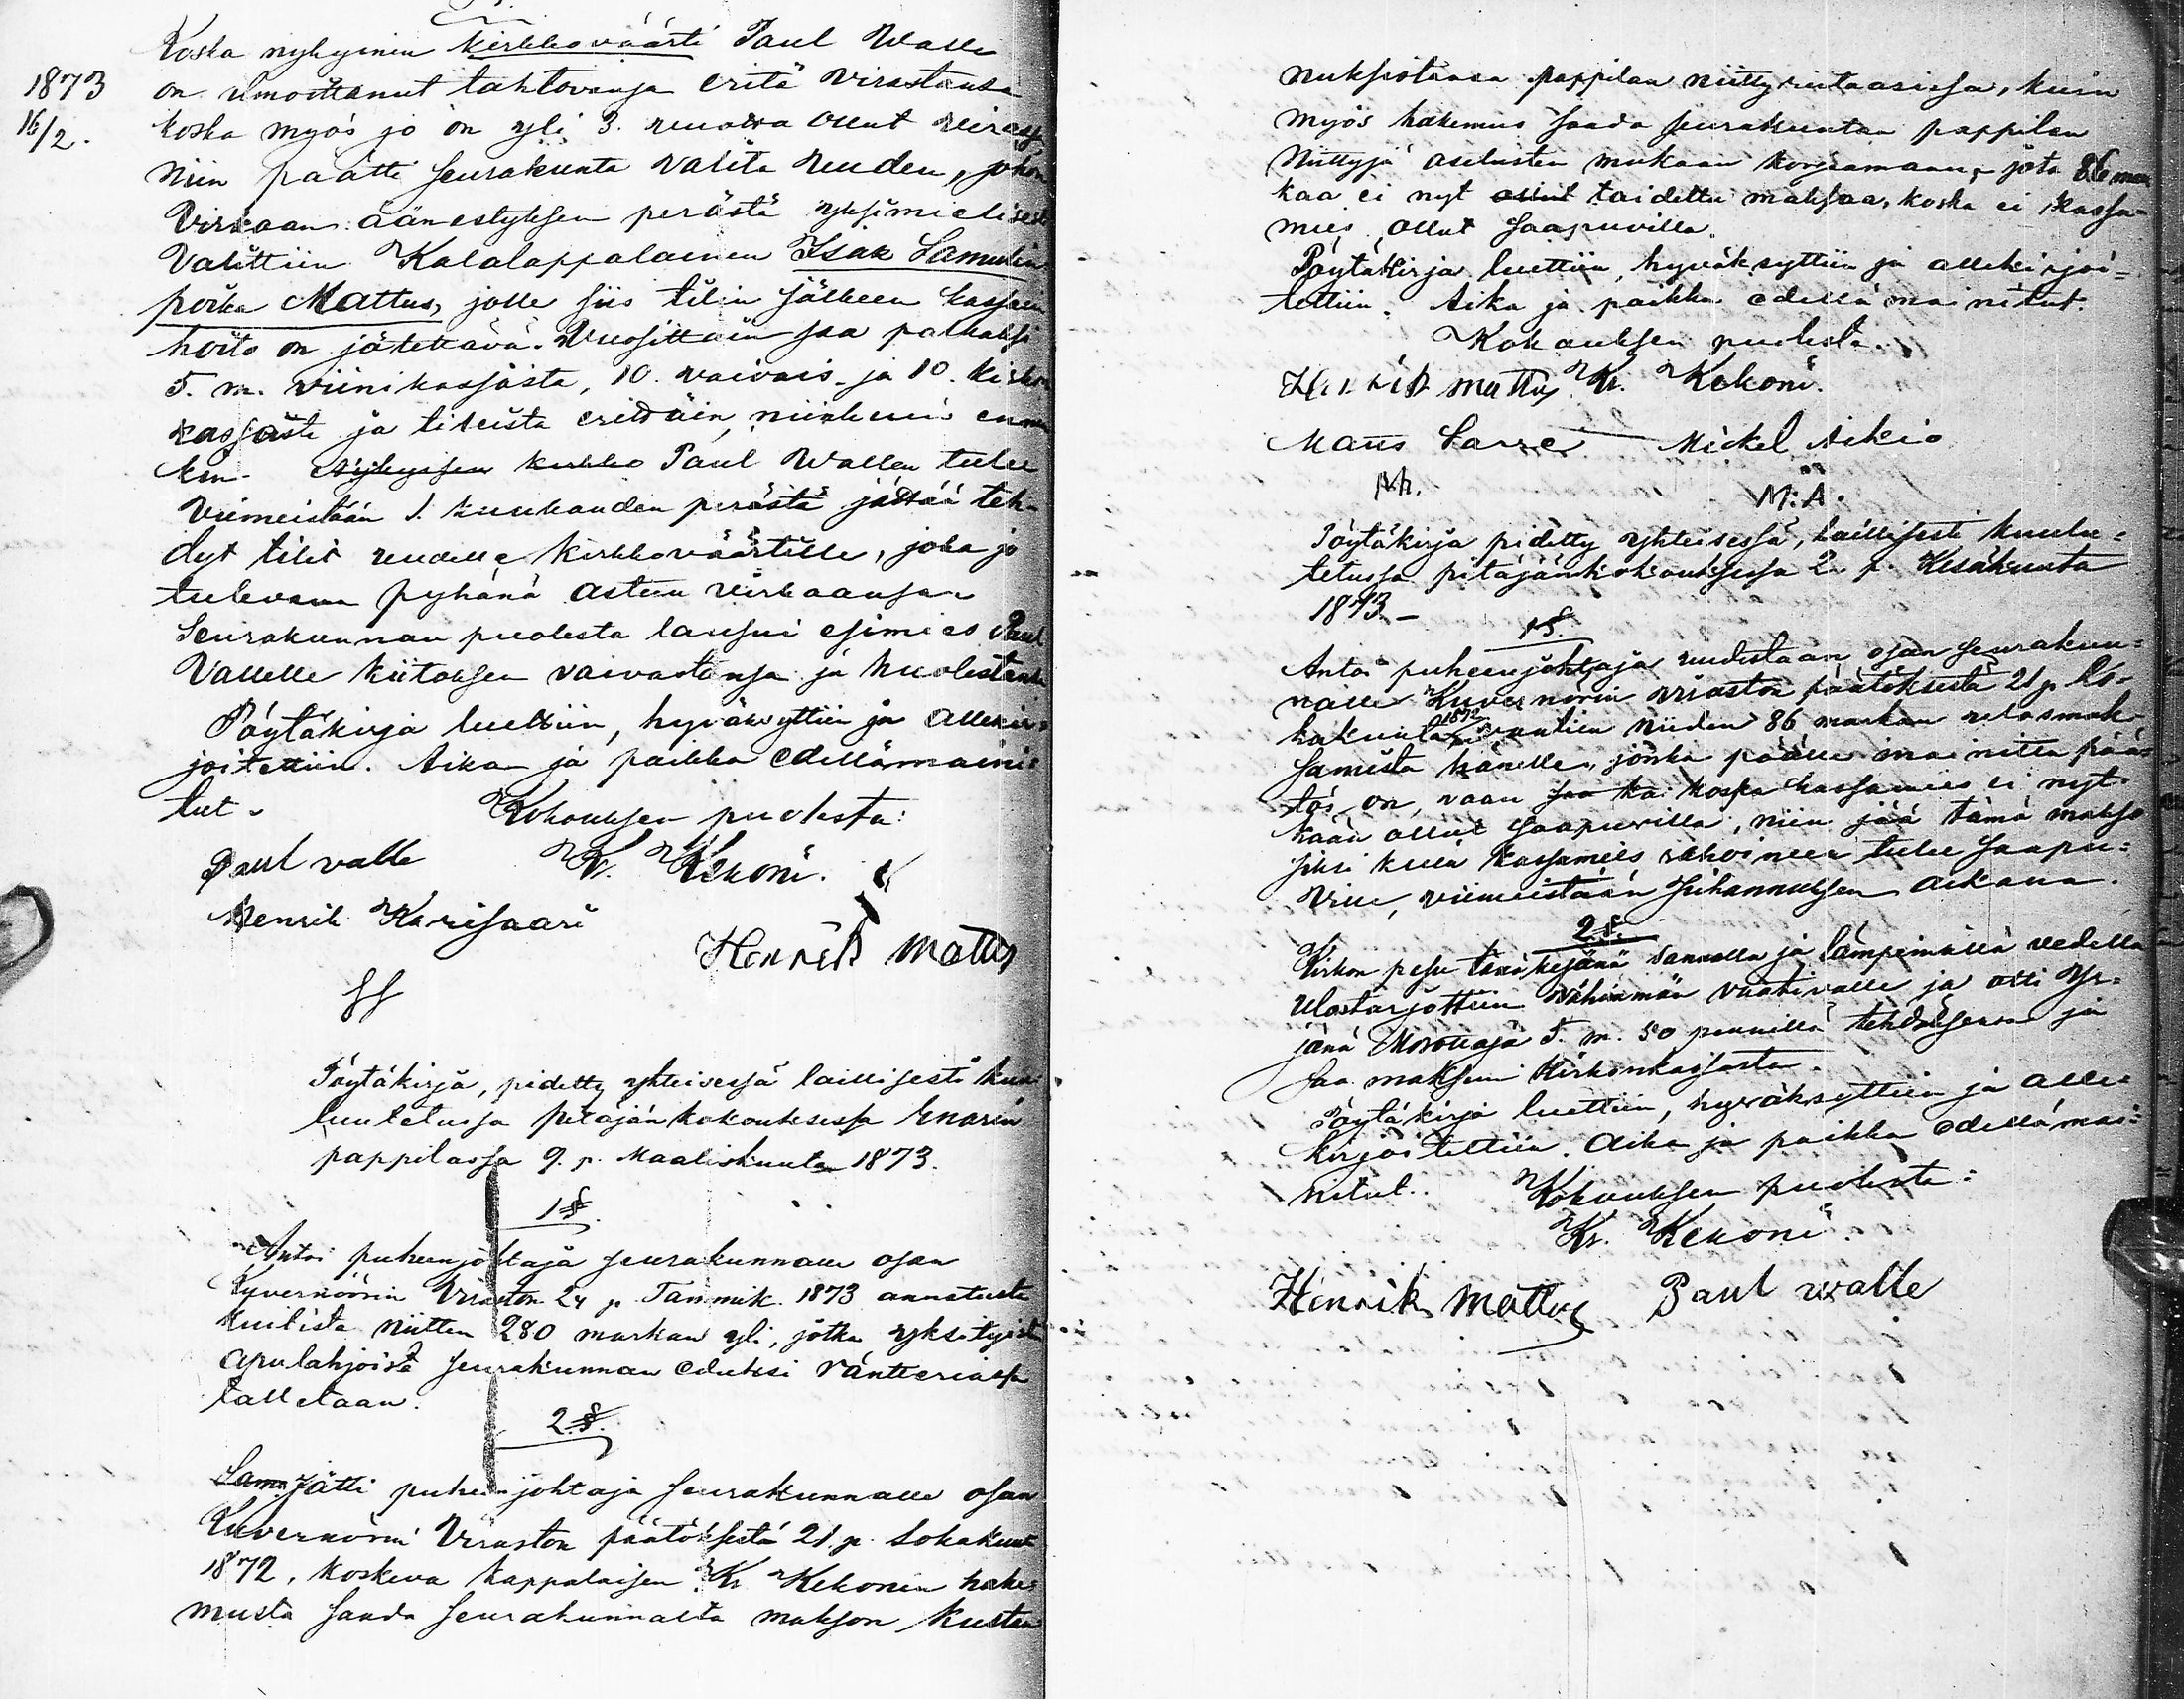 Koska nykyinen kirkkoväärti Paul Walle
1873
16/2.
on ilmoittanut tahtovansa eritä virastansa
koska myös jo on yli 3. vuotta ollut virassa
niin päätti seurakunta valita uuden, johon
virkaan äänestyksen perästä yksimielisesti
valittiin Kalalappalainen Isak Samulin
poika Mattus, jolle siis tilin jälkeen kassain
hoito on jätettävä. Vuosittain saa palkaksi
5. m. viinikassasta, 10. vaivais- ja 10. kirkon
kassasta ja tileistä erittäin, niinkuin en
Nykyisen kirkko Paul Wallen tulee
viimeistään 1. kuukauden perästä jättää teh-
dyt tilit uudelle kirkkoväärtille, joka jo
tulevana pyhänä astuu virkaansa.
Seurakunnan puolesta lausui esimies Paul
Vallelle kiitoksen vaivastansa ja huolestansa
Pöytäkirja luettiin, hyväksyttiin ja allekir-
joitettiin. Aika ja paikka edellämaini-
tut. Kokouksen puolesta:
Paul valle Kr. Kekoni.
Henrik Karisaari
Henrik Mattus
Pöytäkirja, pidetty yhteisessä laillisesti kuu-
luutetussa pitäjänkokouksessa Enarin
pappilassa 9. p. Maaliskuuta 1873.
1 §.
Antoi puheenjohtaja seurakunnalle osan
Kyvernöörin Viraston 24 p. Tammik. 1873 annetusta
kuitista niitten 280 markan yli, jotka yksityisistä
apulahjoista seurakunnan eduksi räntteriassa
talletaan.
2 §.
Jätti puheenjohtaja seurakunnalle osan
Kuvernörin Viraston päätöksestä 21 p. Lokakuuta
1872, koskeva kappalaisen Kr Kekonin hake-
musta saada seurakunnalta makson, kustan
nuksistansa pappilan niittyriitaasiassa, kuin
myös hakemus saada seurakuntaa pappilan
niittyjä asetusten mukaan korjaamaan, jota 86 mark
kaa ei nyt taidettu maksaa, koska ei kassa-
mies ollut saapuvilla.
Pöytäkirja luettiin, hyväksyttiin ja allekirjoi-
tettiin. Aika ja paikka edellä mainitut.
Kokouksen puolesta.
Henrik mattus Kr. Kekoni.
Mats Sarre Mickel Aikio
M.A.
Pöytäkirja pidetty yhteisessä, laillisesti kuulu-
tetussa pitäjänkokouksessa 2. p. Kesäkuuta
1873.-
1 §.
Antoi puheenjohtaja uudistaan osan seurakun-
nalle Kuvernörin viraston päätöksestä 21 p. Lo-
kakuuta 1872 niiden 86 markan ulosmak-
samista hänelle, jonka päälle mainittu pää-
tös on, vaan koska kassamies ei nyt
kään ollut saapuvilla, niin jää tämä makso
siksi kuin kassamies rahoineen tulee saapu-
ville, viimeistään Juhannuksen aikana.
2 §.
Kirkon pesu sannalla ja lämpimällä vedellä
ulostarjottiin vähimmän vaativalle ja otti Yr-
jänä Morottaja 5. m. 50 pennillä tehdäksensä ja
saa maksun Kirkonkassasta.
Pöytäkirja luettiin, hyväksyttiin ja alle-
kirjoitettiin. Aika ja paikka edellämai-
nitut. Kokouksen puolesta:
Kr. Kekoni.
Henrik mattus Paul walle